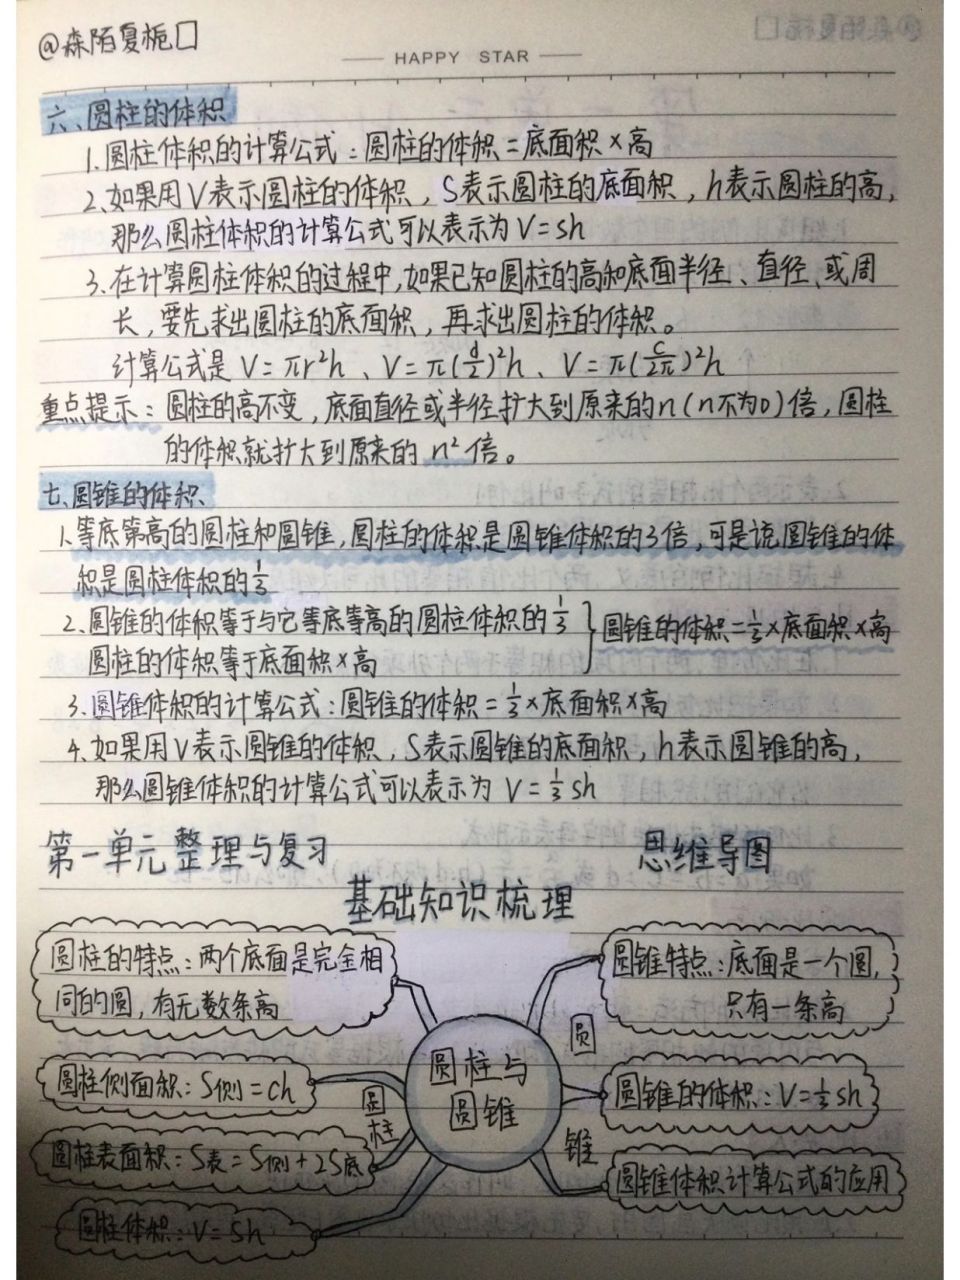 @森陌夏栀□
HAPPY STAR
六、圆柱的体积
1.圆柱体积的计算公式：圆柱的体积=底面积×高
2.如果用V表示圆柱的体积，S表示圆柱的底面积，h表示圆柱的高，
那么圆柱体积的计算公式可以表示为V=sh
3.在计算圆柱体积的过程中，如果已知圆柱的高和底面半径、直径、或周
长，要先求出圆柱的底面积，再求出圆柱的体积。
计算公式是V=πr²h、V=π(d/2)²h、V=π(C/2π)²h
重点提示：圆柱的高不变，底面直径或半径扩大到原来的n(n不为0)倍，圆柱
的体积就扩大到原来的n²倍。
七.圆锥的体积
1.等底等高的圆柱和圆锥，圆柱的体积是圆锥体积的3倍，可是说圆锥的体
积是圆柱体积的1/3
2.圆锥的体积等于与它等底等高的圆柱体积的1/3
圆柱的体积等于底面积×高
}圆锥的体积=1/3×底面积×高
3.圆锥体积的计算公式：圆锥的体积=1/3×底面积×高
4.如果用V表示圆锥的体积，S表示圆锥的底面积，h表示圆锥的高，
那么圆锥体积的计算公式可以表示为V=1/3sh
第一单元整理与复习 思维导图
基础知识梳理
圆柱的特点：两个底面是完全相
同的圆，有无数条高
圆柱侧面积：S侧=ch
圆柱表面积：S表=S侧+2S底
圆柱体积：V=Sh
圆柱
圆柱与
圆锥
圆锥
圆锥特点：底面是一个圆，
只有一条高
圆锥的体积：V=1/3sh
圆锥体积计算公式的应用